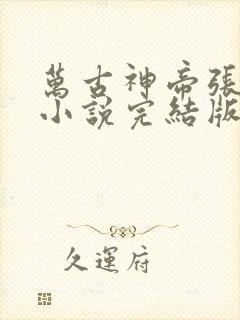 萬古神帝張
小說完結版
久運府